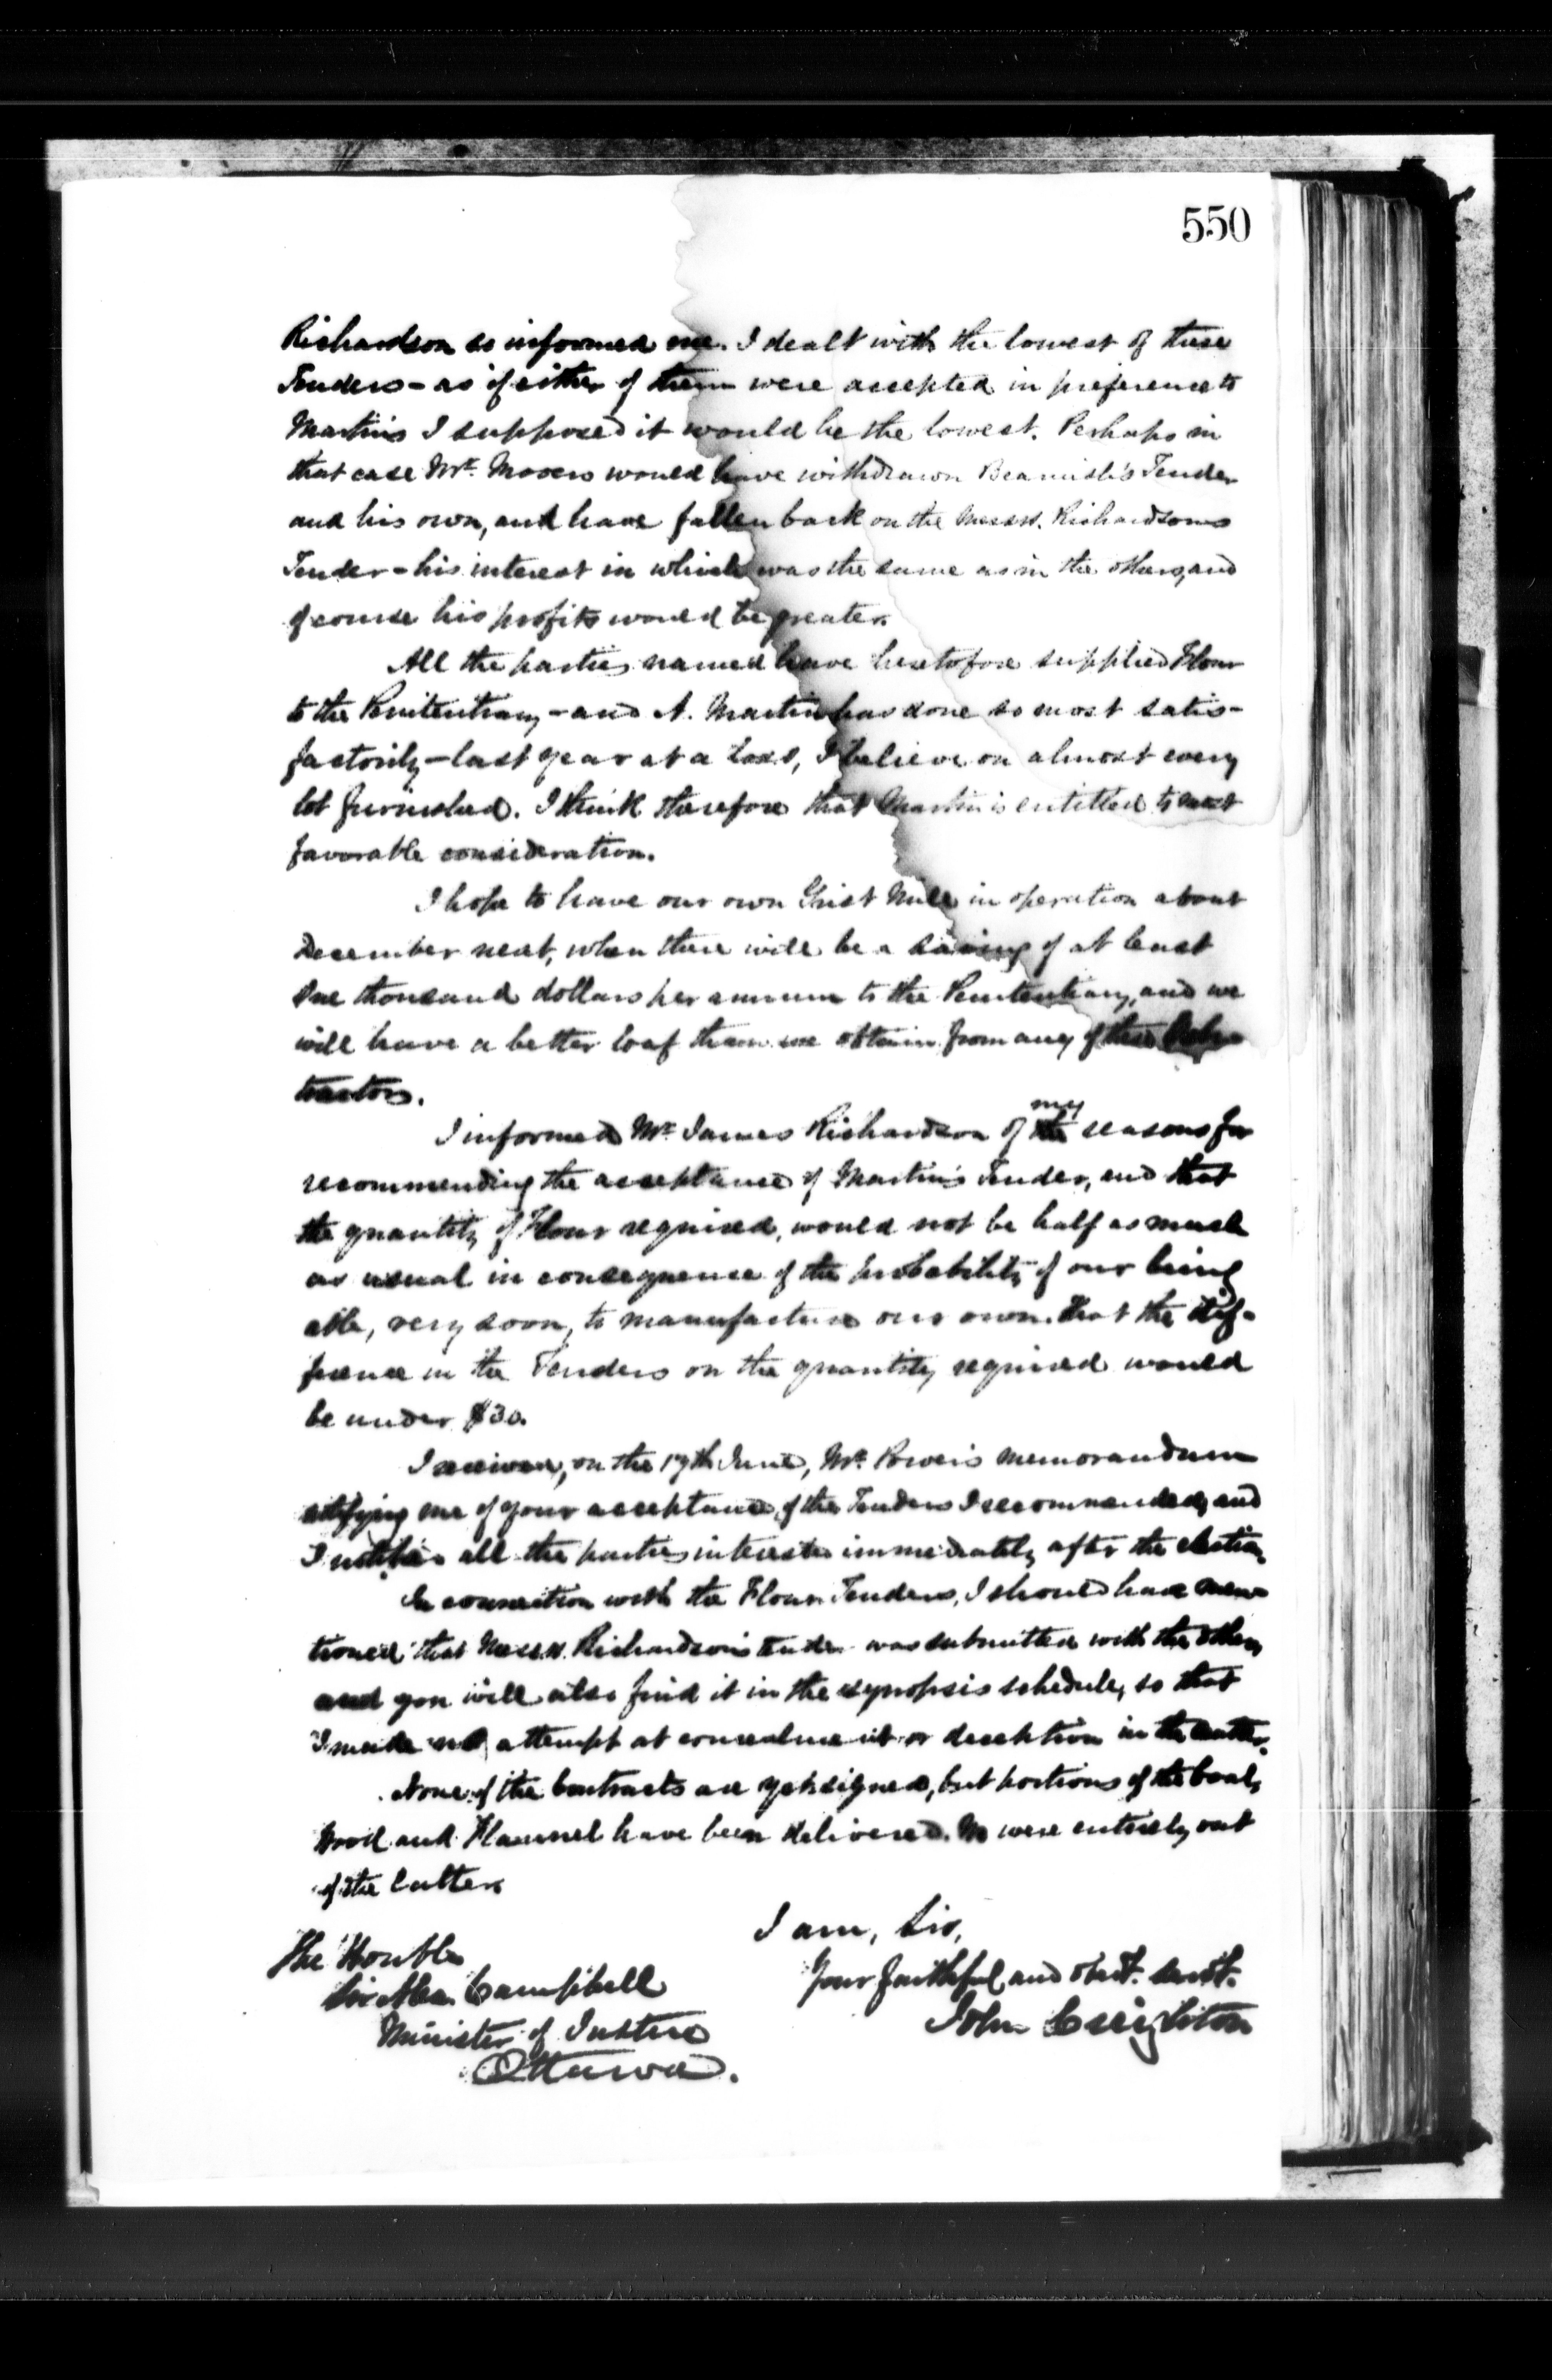 550
Richardson so informed me. I dealt with the lowest of these
Tenders - as if either of them were accepted in preference to
Martin's I supposed it would be the lowest. Perhaps in
that case Mr. Mooers would have withdrawn Beamish's Tender
and his own, and have fallen back on the Messrs. Richardsons
Tender - his interest in which was the same as in the others, and
of course his profits would be greater.
All the parties named have heretofore supplied Flour
to the Penitentiary - and A. Martin has done so most satis-
factorily - last year at a loss, I believe on almost every
lot furnished. I think therefore that Martin is entitled to most
favorable consideration.
I hope to have our own Grist Mill in operation about
December next, when there will be a saving of at least
One thousand dollars per annum to the Penitentiary, and we
will have a better loaf than we obtain from any of these Con-
tractors.
I informed Mr. James Richardson of my the reasons for
recommending the acceptance of Martin's Tender, and that
the quantity of Flour required, would not be half as much
as usual in consequence of the probability of our being
able, very soon, to manufacture our own. That the dif-
ference in the Tenders on the quantity required would
be under $30.
I received, on the 17th June, Mr. Power's memorandum
notifying me of your acceptance of the Tenders I recommended, and
I notified all the parties interested immediately after the election.
In connection with the Flour Tenders, I should have men-
tioned that Messrs. Richardson's tender was submitted with the others
and you will also find it in the synopsis schedule, so that
I made no attempt at concealment or deception in the matter.
None of the Contracts are yet signed, but portions of the Coal,
Wood and Flannel have been delivered. We were entirely out
of the latter.
I am, Sir,
Your faithful and obedt. servt.
John Creighton
The Honble
Sir Alex. Campbell
Minister of Justice
Ottawa.